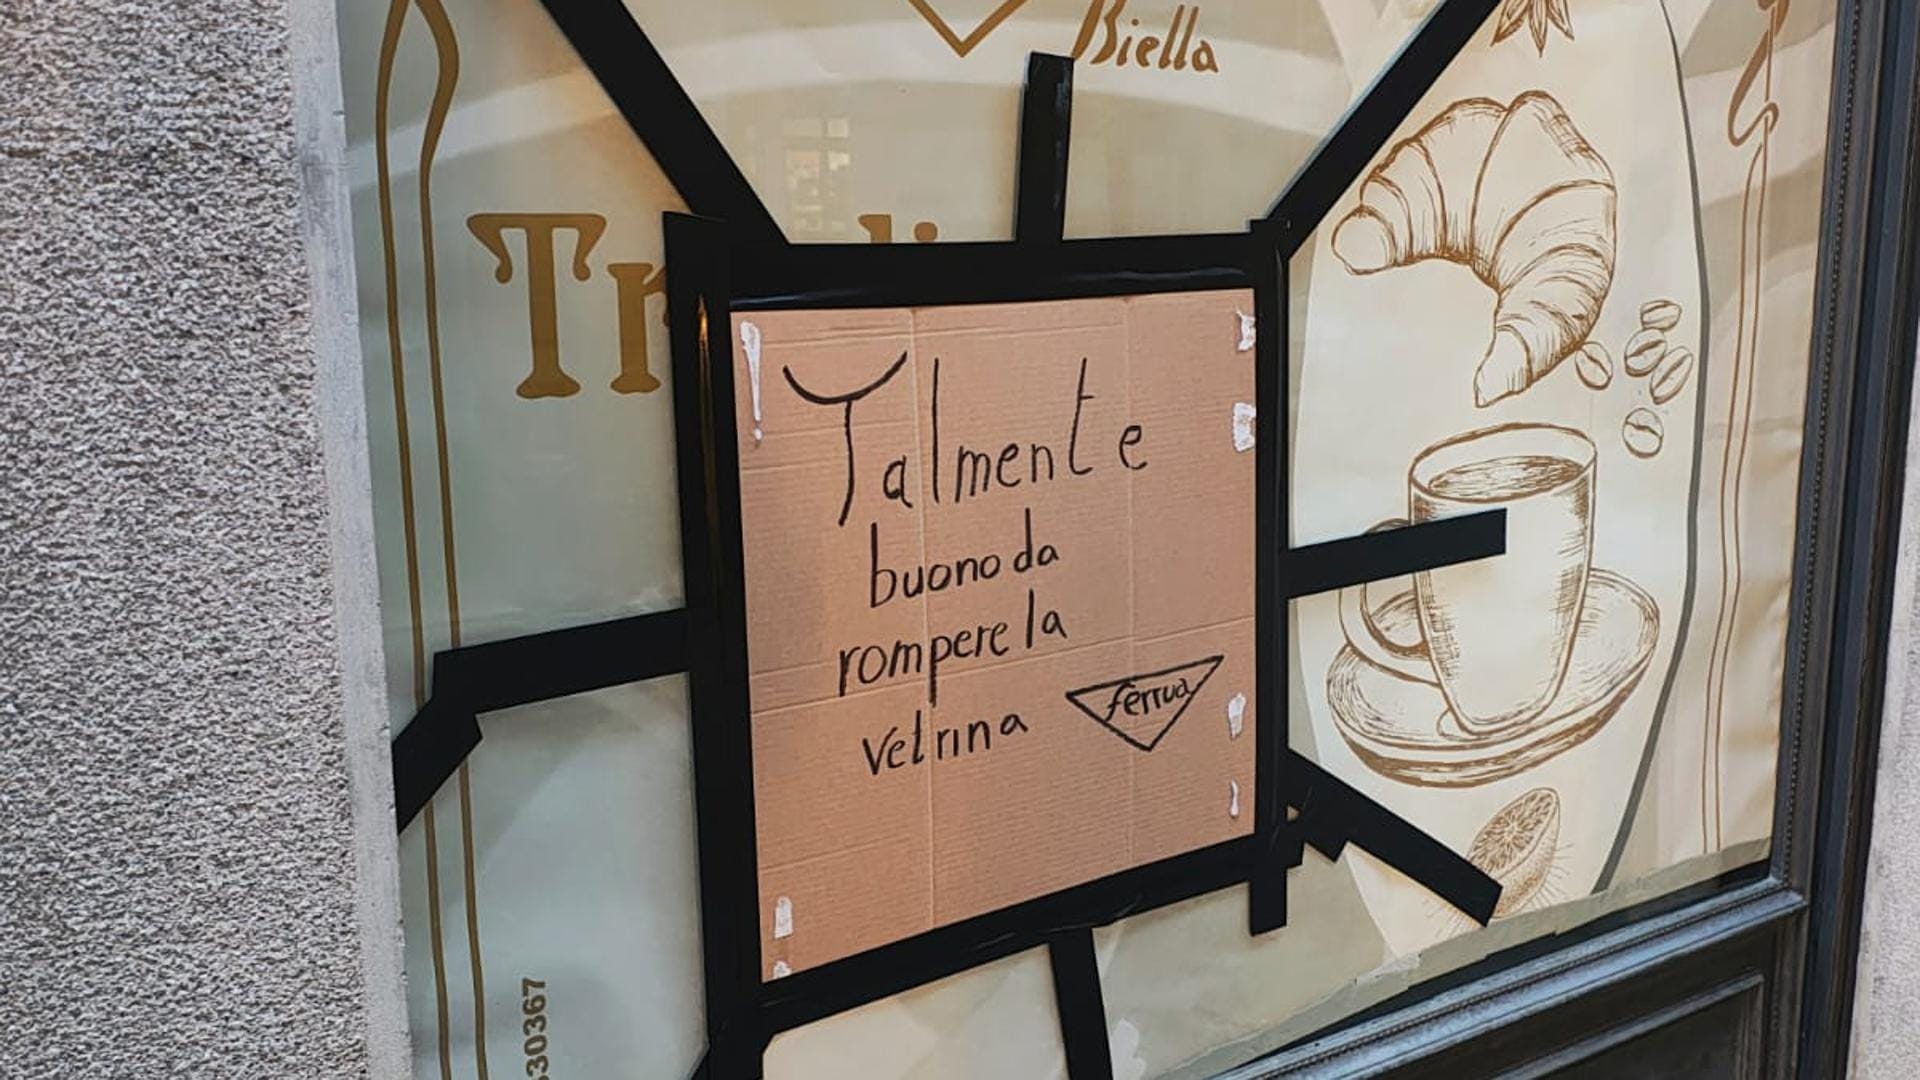 Biella
Talmente
buono da
rompere la
vetrina
ferrua
330367